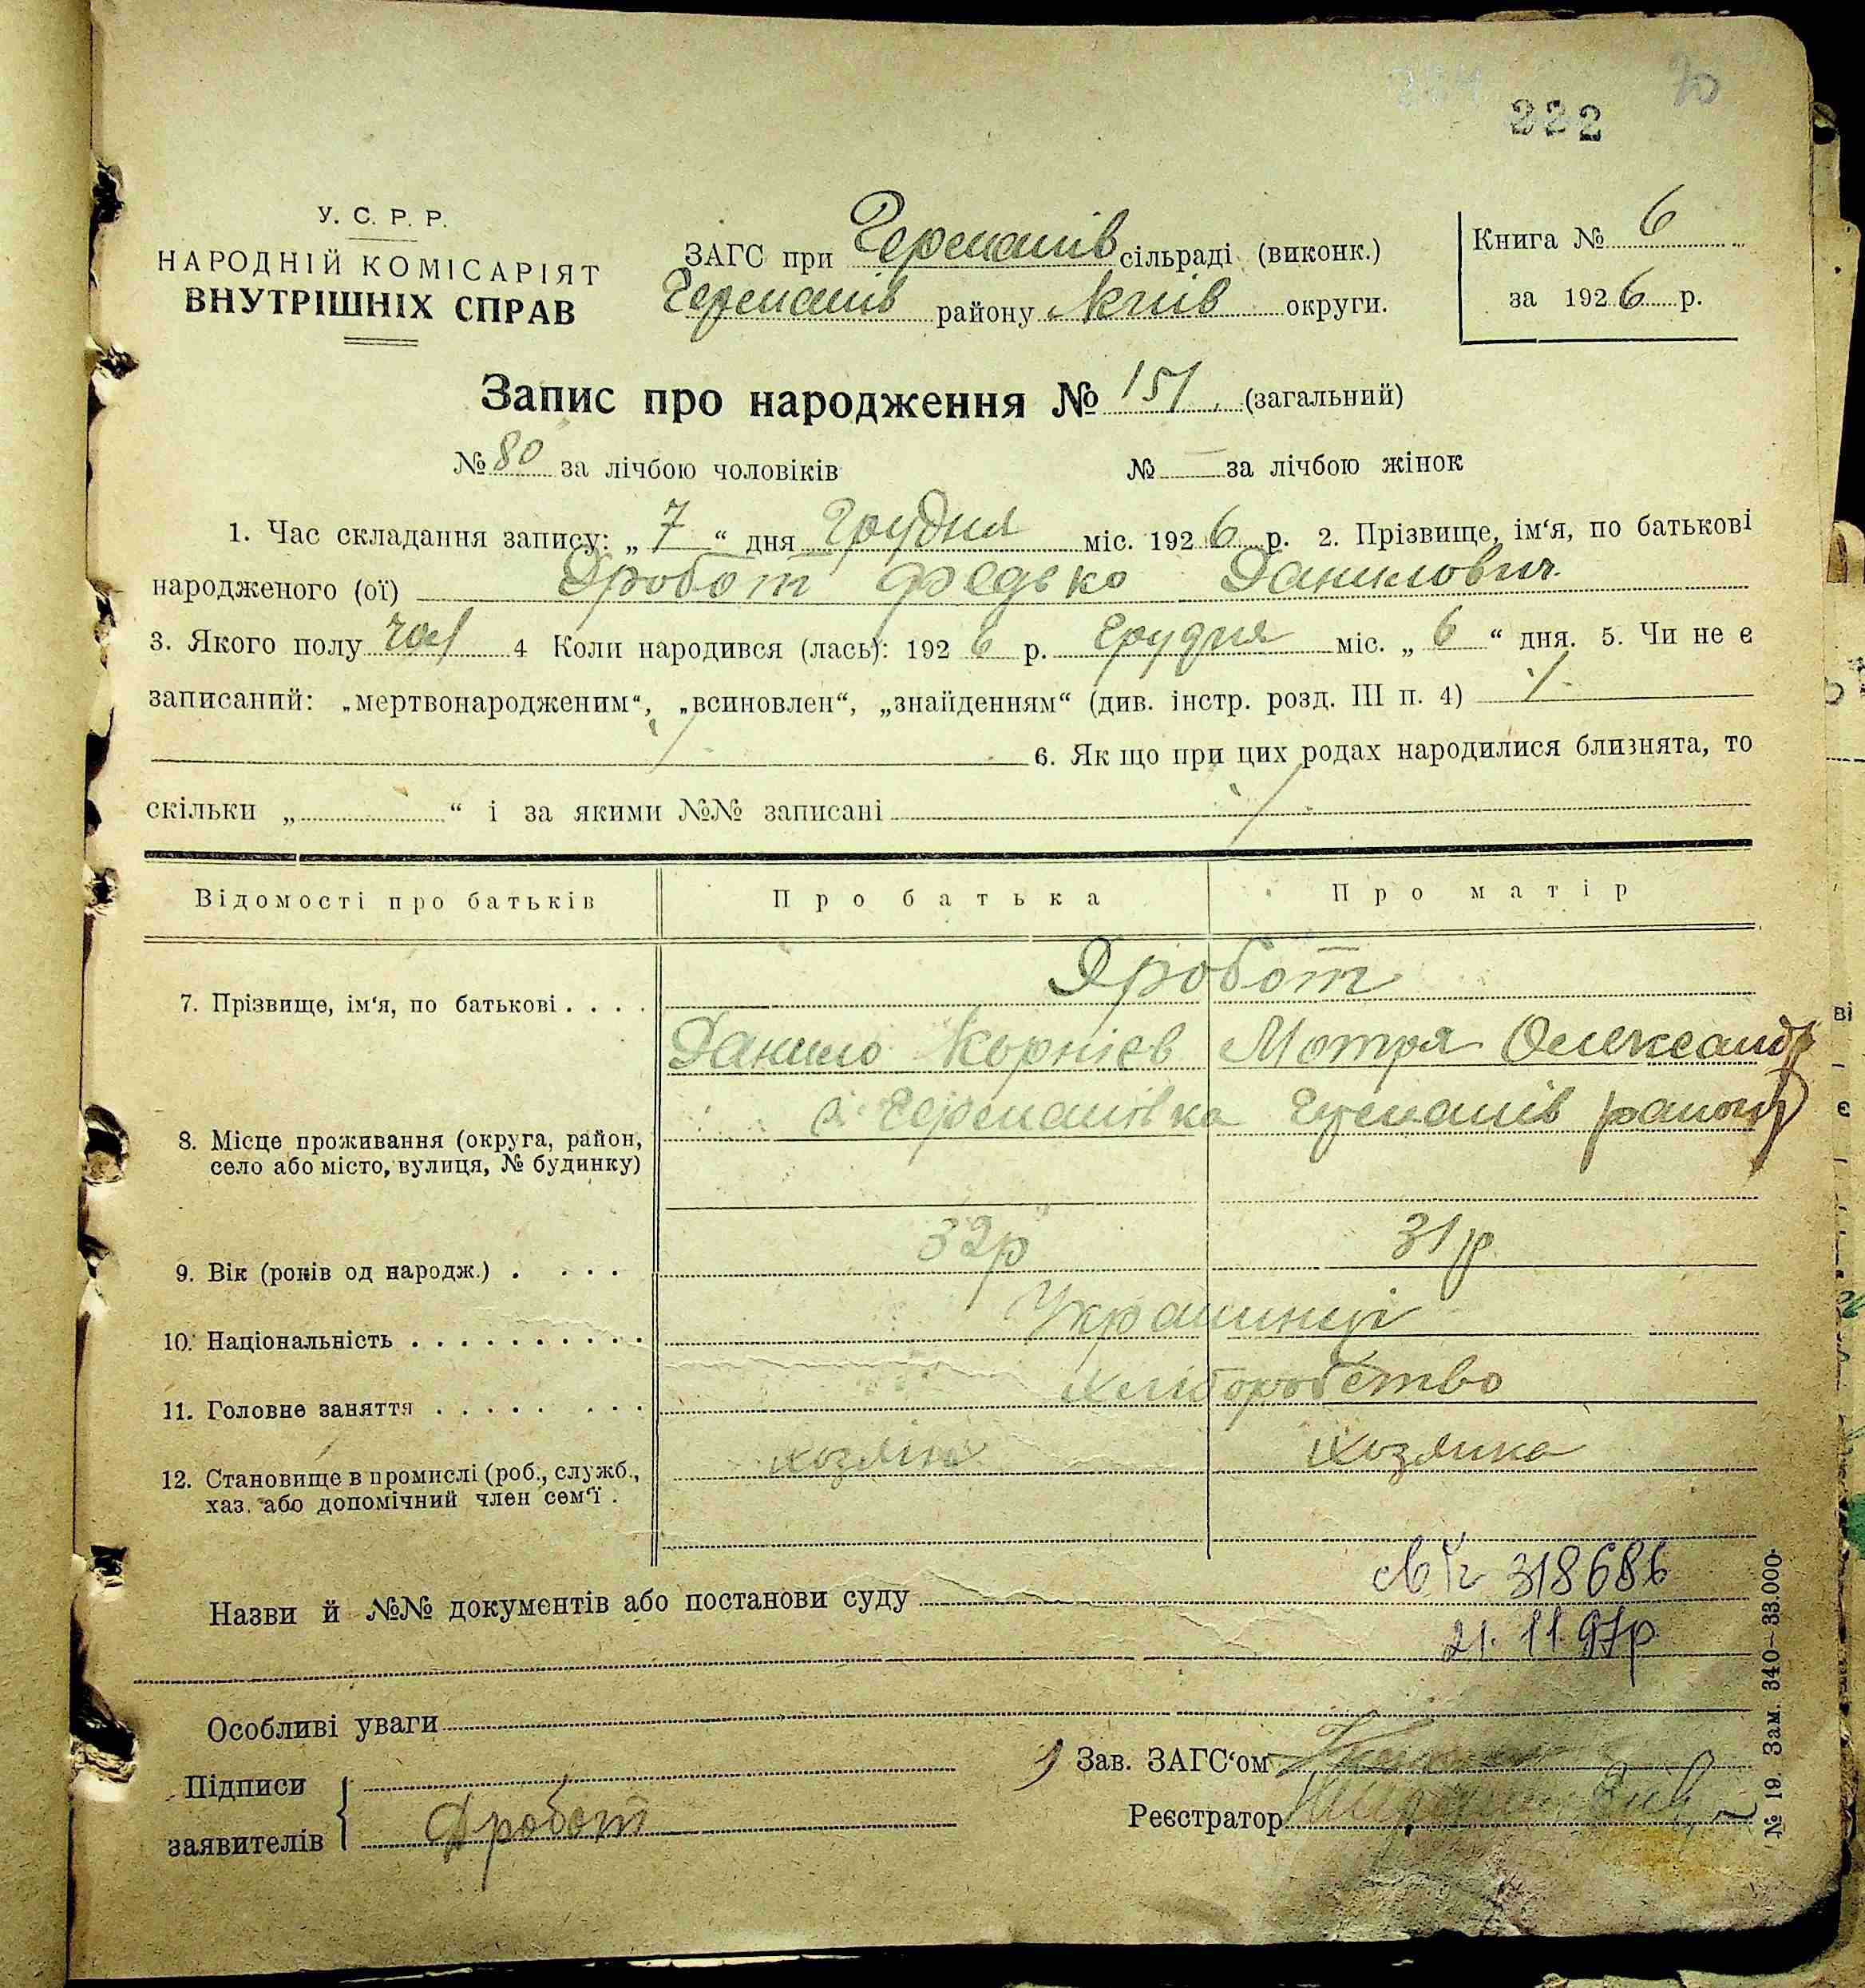 70
222
У. С. Р. Р.
НАРОДНІЙ КОМІСАРІЯТ
ВНУТРІШНІХ СПРАВ
ЗАГС при Германів сільраді (виконк.)
Германів району Київ округи.
Книга № 6
за 1926 р.
Запис про народження № 151 (загальний)
№ 80 за лічбою чоловіків № — за лічбою жінок
1. Час складання запису: „ 7 “ дня Грудня міс. 1926 р. 2. Прізвище, ім‘я, по батькові
народженого (ої) Дробот Федько Данилович
3. Якого полу чол 4 Коли народився (лась): 1926 р. Грудня міс. „ 6 “ дня. 5. Чи не є
записаний: „мертвонародженим“, „всиновлен“, „знайденням“ (див. інстр. розд. III п. 4)
6. Як що при цих родах народилися близнята, то
скільки „ “ і за якими №№ записані
Відомості про батьків Про батька Про матір
Дробот
7. Прізвище, ім‘я, по батькові . . . .
Данило Корнієв Мотря Олександр
с. Германівка Германів району
8. Місце проживання (округа, район,
село або місто, вулиця, № будинку)
32р 31р
9. Вік (років од народж.) . . . .
Українці
10. Національність . . . . . . . . . .
хліборобство
11. Головне заняття . . . . . . . .
хозяін хозяйка
12. Становище в промислі (роб., служб.,
хаз. або допомічний член сем‘ї .
318686
Назви й №№ документів або постанови суду
21. 11. 97р
Особливі уваги
Підписи
заявителів
Дробот
Зав. ЗАГС‘ом
Реєстратор
№ 19. Зам. 340–33.000